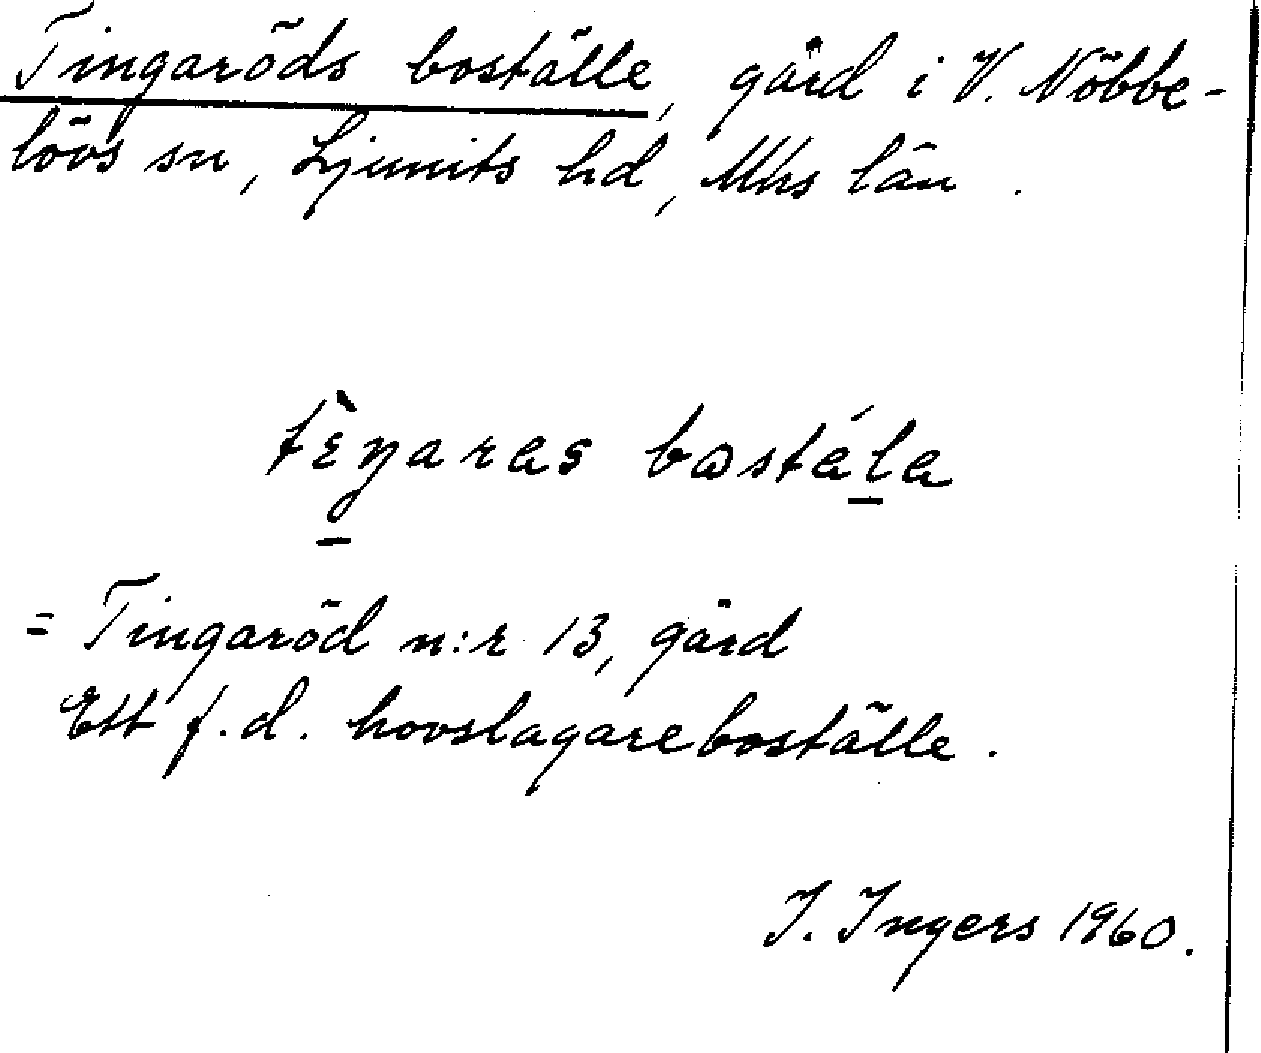 Tingaröds boställe, gård i V. Nöbbe-
lövs sn, Ljunits hd, Mhs län.
tɛ̀ŋaras bωstála
= Tingaröd n:r 13, gård
Ett f.d. hovslagareboställe.
I. Ingers 1960.